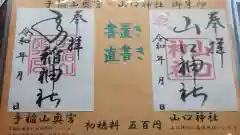 手稲山奥宮 山口神社 御朱印
奉拝
手稲神社
令和 年 月 日
奉拝
山口神社
令和 年 月 日
手稲山奥宮 初穂料 五百円 山口神社